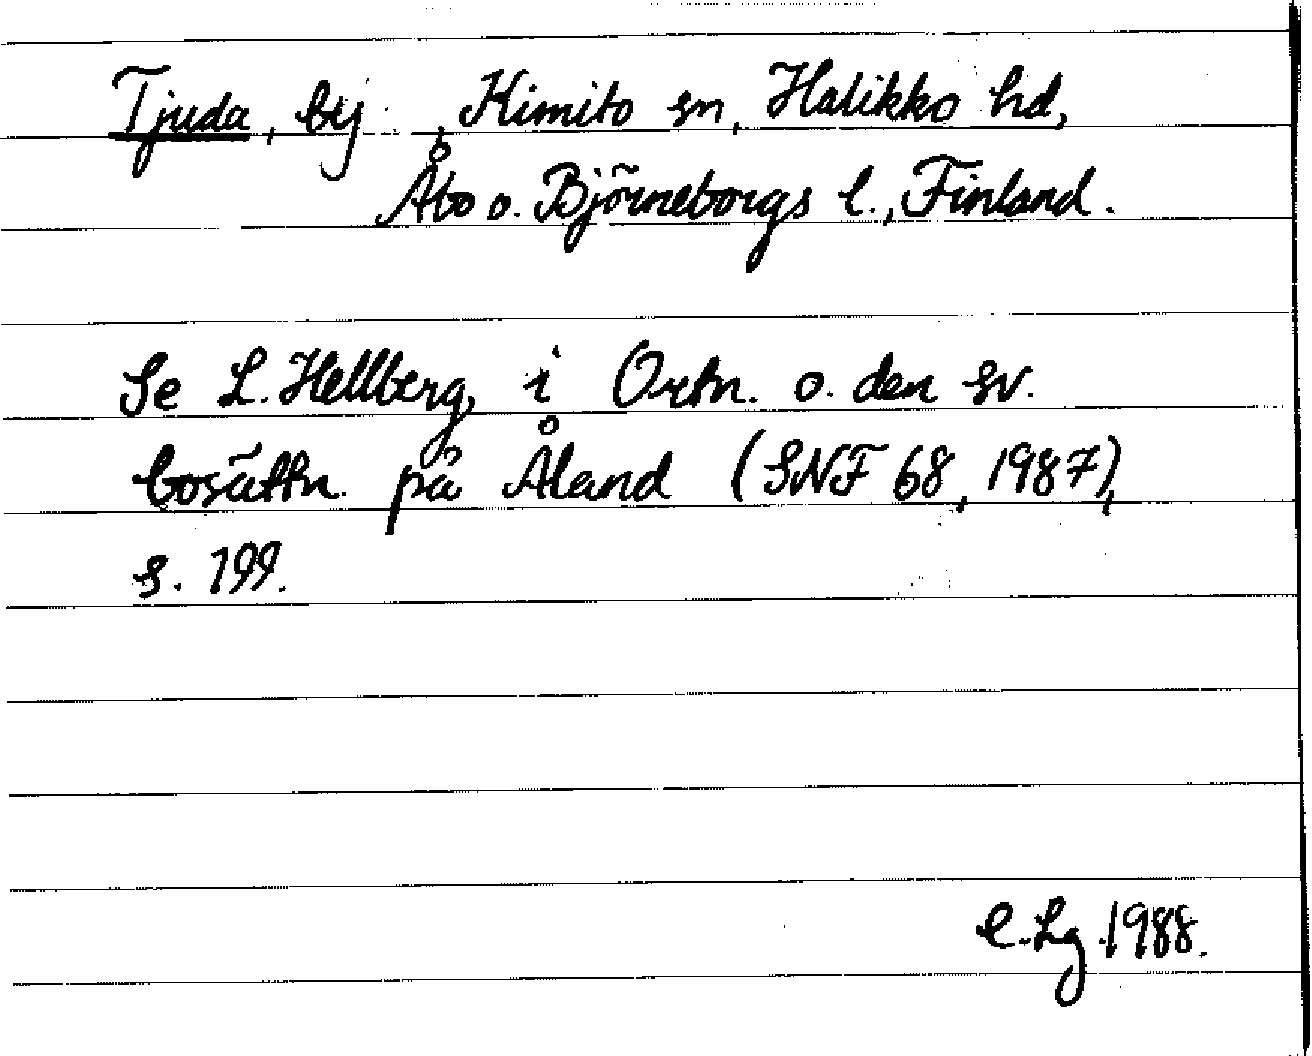 Tjuda, by, Kimito sn, Halikko hd,
Åbo o. Björneborgs l., Finland.
Se L. Hellberg, i Ortn. o. den sv.
bosättn. på Åland (SNF 68, 1987),
s. 199.
C. Hg 1988.